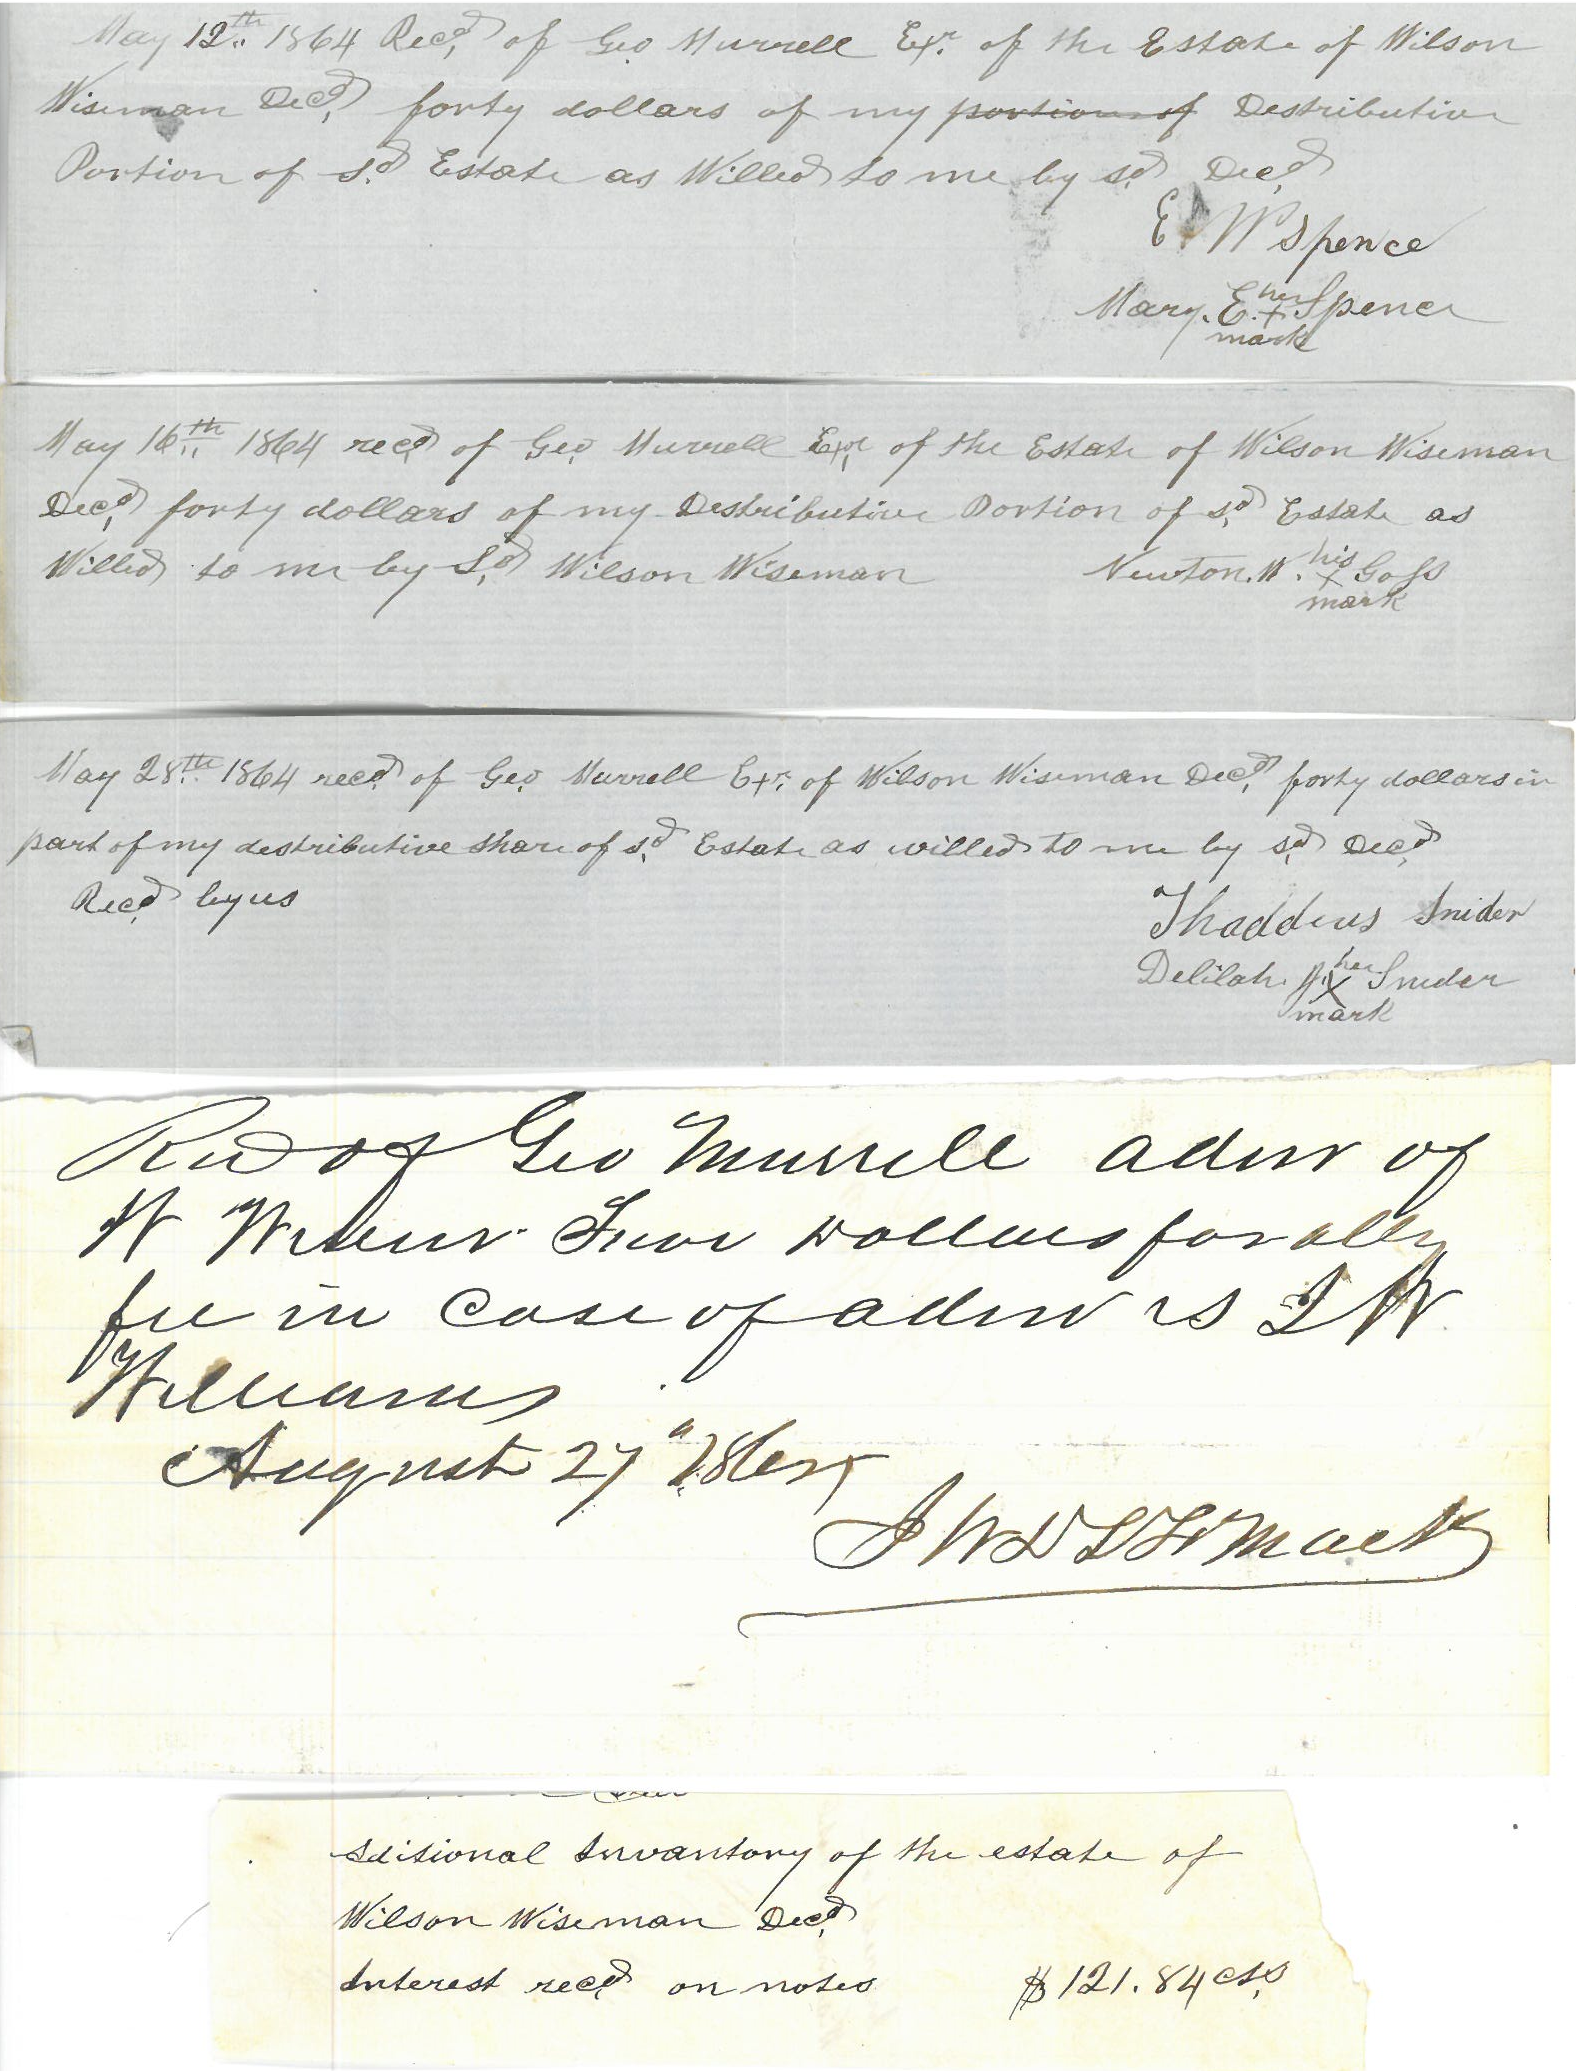 May 12th 1864 Recd, of Geo Murrell Exr. of the Estate of Wilson
Wiseman Decd, forty dollars of my portion of Distributive
Portion of sd Estate as Willed to me by sd Decd
E W Spence
her
Mary. E. + Spence
mark
May 16th 1864 recd of Geo Murrell Exr of the Estate of Wilson Wiseman
Decd, forty dollars of my Distributive Portion of sd Estate as
Willed to me by Sd Wilson Wiseman Newton. W. his + Goss
mark
May 28th 1864 recd of Geo Murrell Exr. of Wilson Wiseman Decd, forty dollars in
part of my destributive share of sd Estate as willed to me by sd Decd
Recd by us
Thaddeus Snider
her
Delilah X Snider
mark
Recd of Geo Murrell admr of
W Dollars for atty
fee in case of admr vs W
Williams
August 27
Mack
aditional Invantory of the estate of
Wilson Wiseman Decd,
Interest recd on notes $121.84 cts,